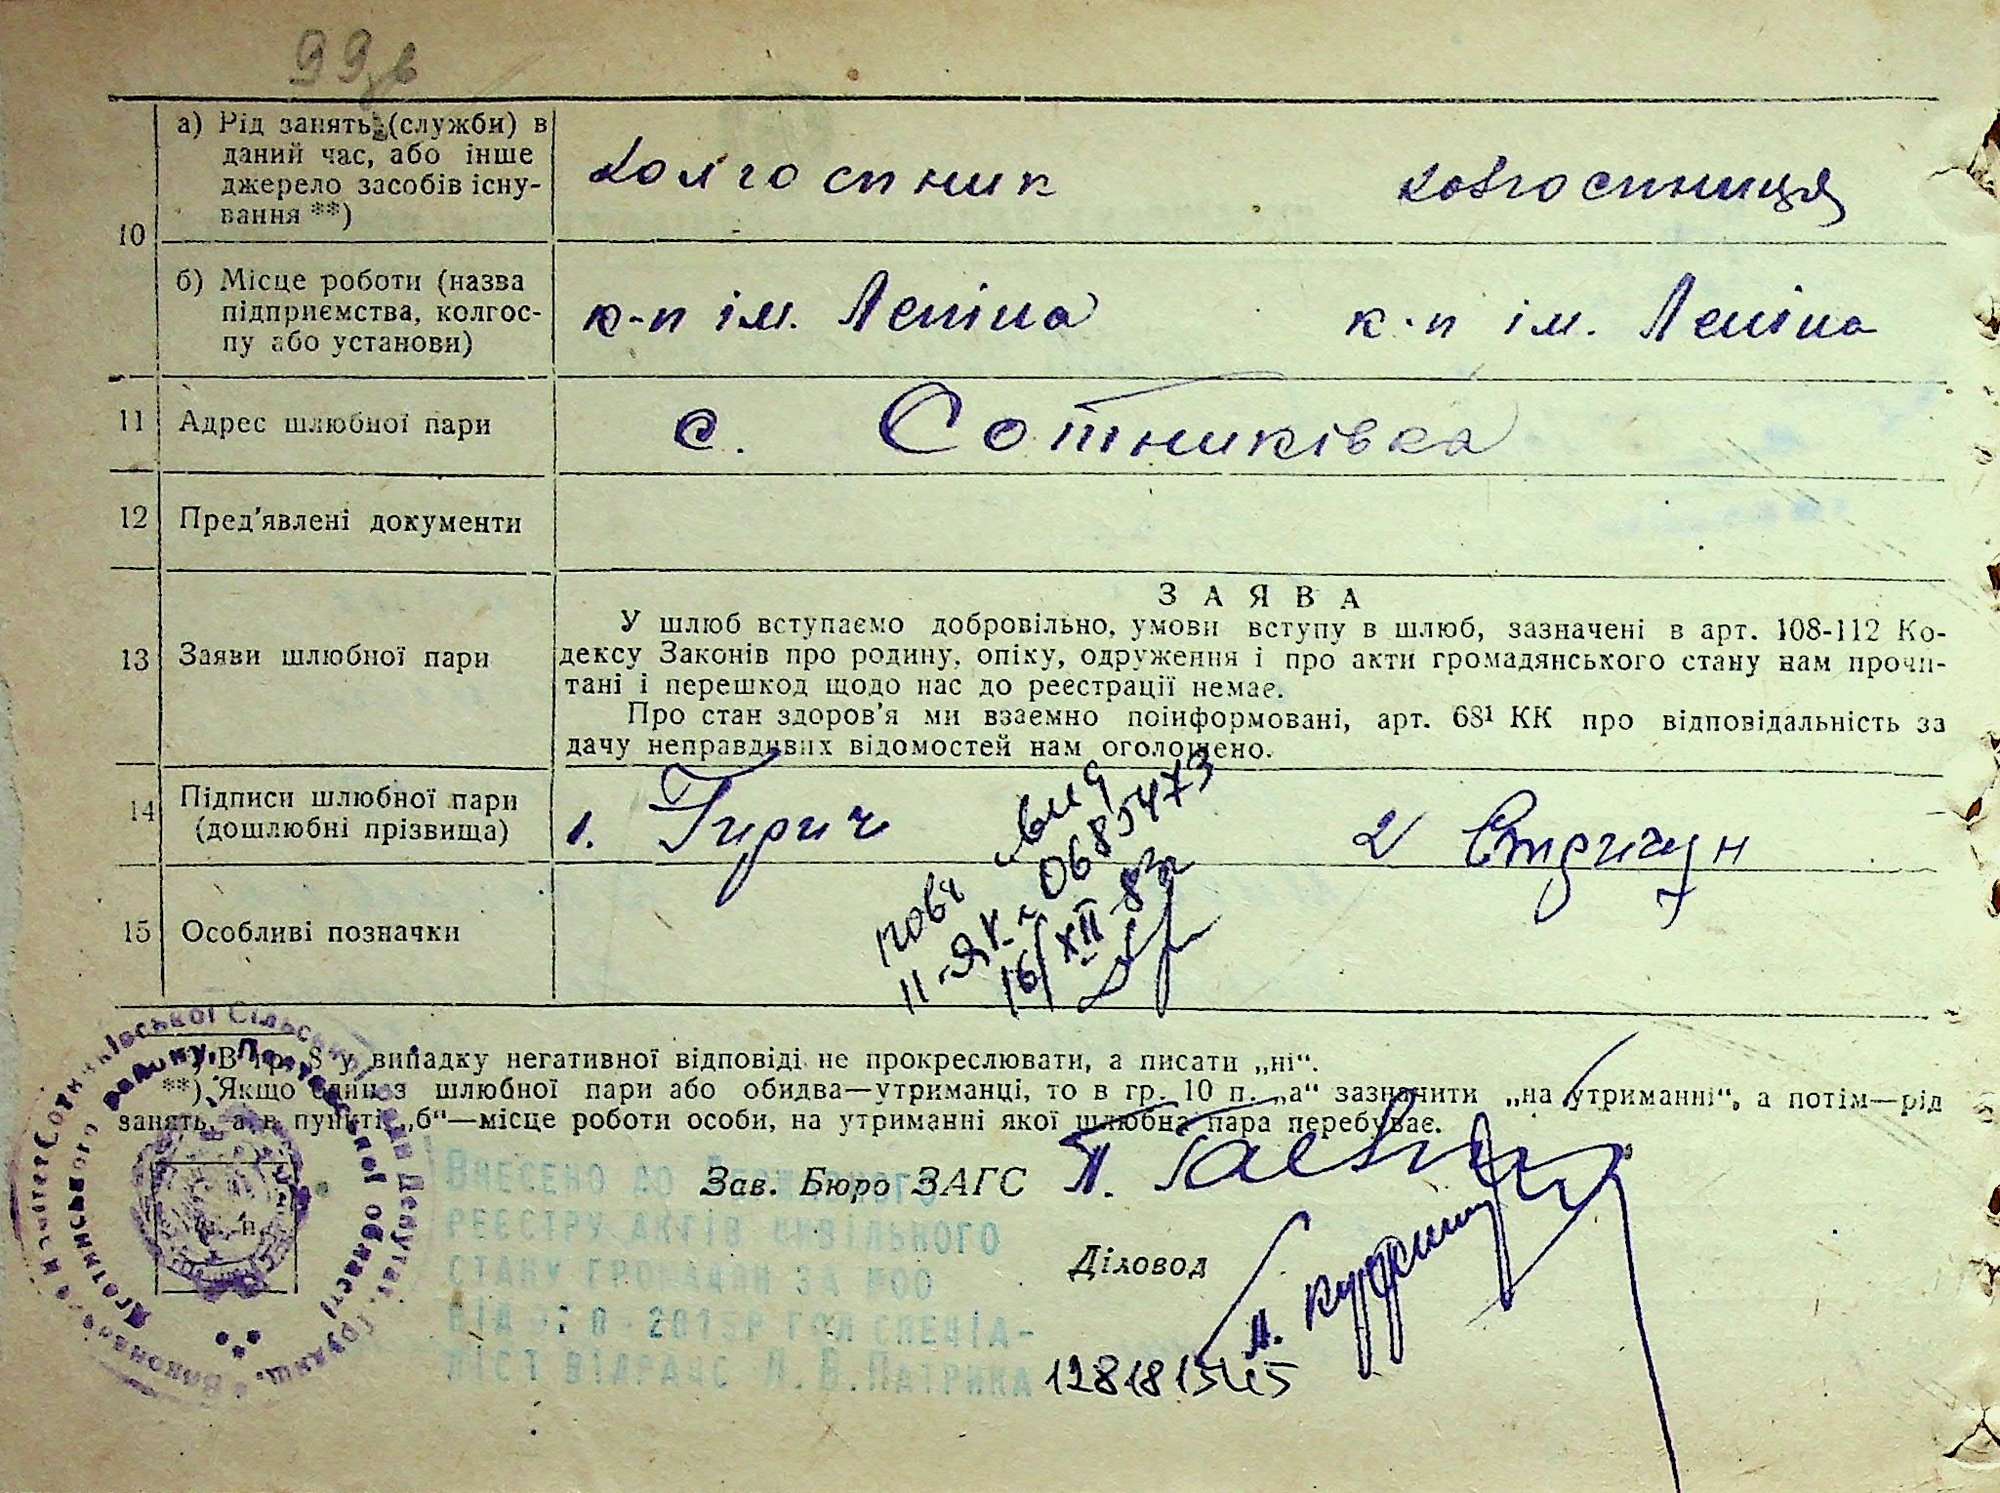 99
10
а) Рід занять (служби) в
даний час, або інше
джерело засобів існу-
вання **)
колгоспник
колгоспниця
б) Місце роботи (назва
підприємства, колгос-
пу або установи)
к-п ім. Леніна
к-п ім. Леніна
11
Адрес шлюбної пари
с. Сотниківка
12
Пред'явлені документи
13
Заяви шлюбної пари
ЗАЯВА
У шлюб вступаємо добровільно, умови вступу в шлюб, зазначені в арт. 108-112 Ко-
дексу Законів про родину, опіку, одруження і про акти громадянського стану нам прочи-
тані і перешкод щодо нас до реєстрації немає.
Про стан здоров'я ми взаємно поінформовані, арт. 68¹ КК про відповідальність за
дачу неправдивих відомостей нам оголошено.
14
Підписи шлюбної пари
(дошлюбні прізвища)
1. Гирич
2 Стригун
15
Особливі позначки
16/XII
*) В гр. 8 у випадку негативної відповіді не прокреслювати, а писати „ні“.
**) Якщо один з шлюбної пари або обидва—утриманці, то в гр. 10 п. „а“ зазначити „на утриманні“, а потім—рід
занять, а в пункті „б“—місце роботи особи, на утриманні якої шлюбна пара перебуває.
Зав. Бюро ЗАГС
Діловод
Внесено до Державного
реєстру актів цивільного
стану громадян за №00
2015р гол спеціа-
ліст відрацс Л.В.Патрика